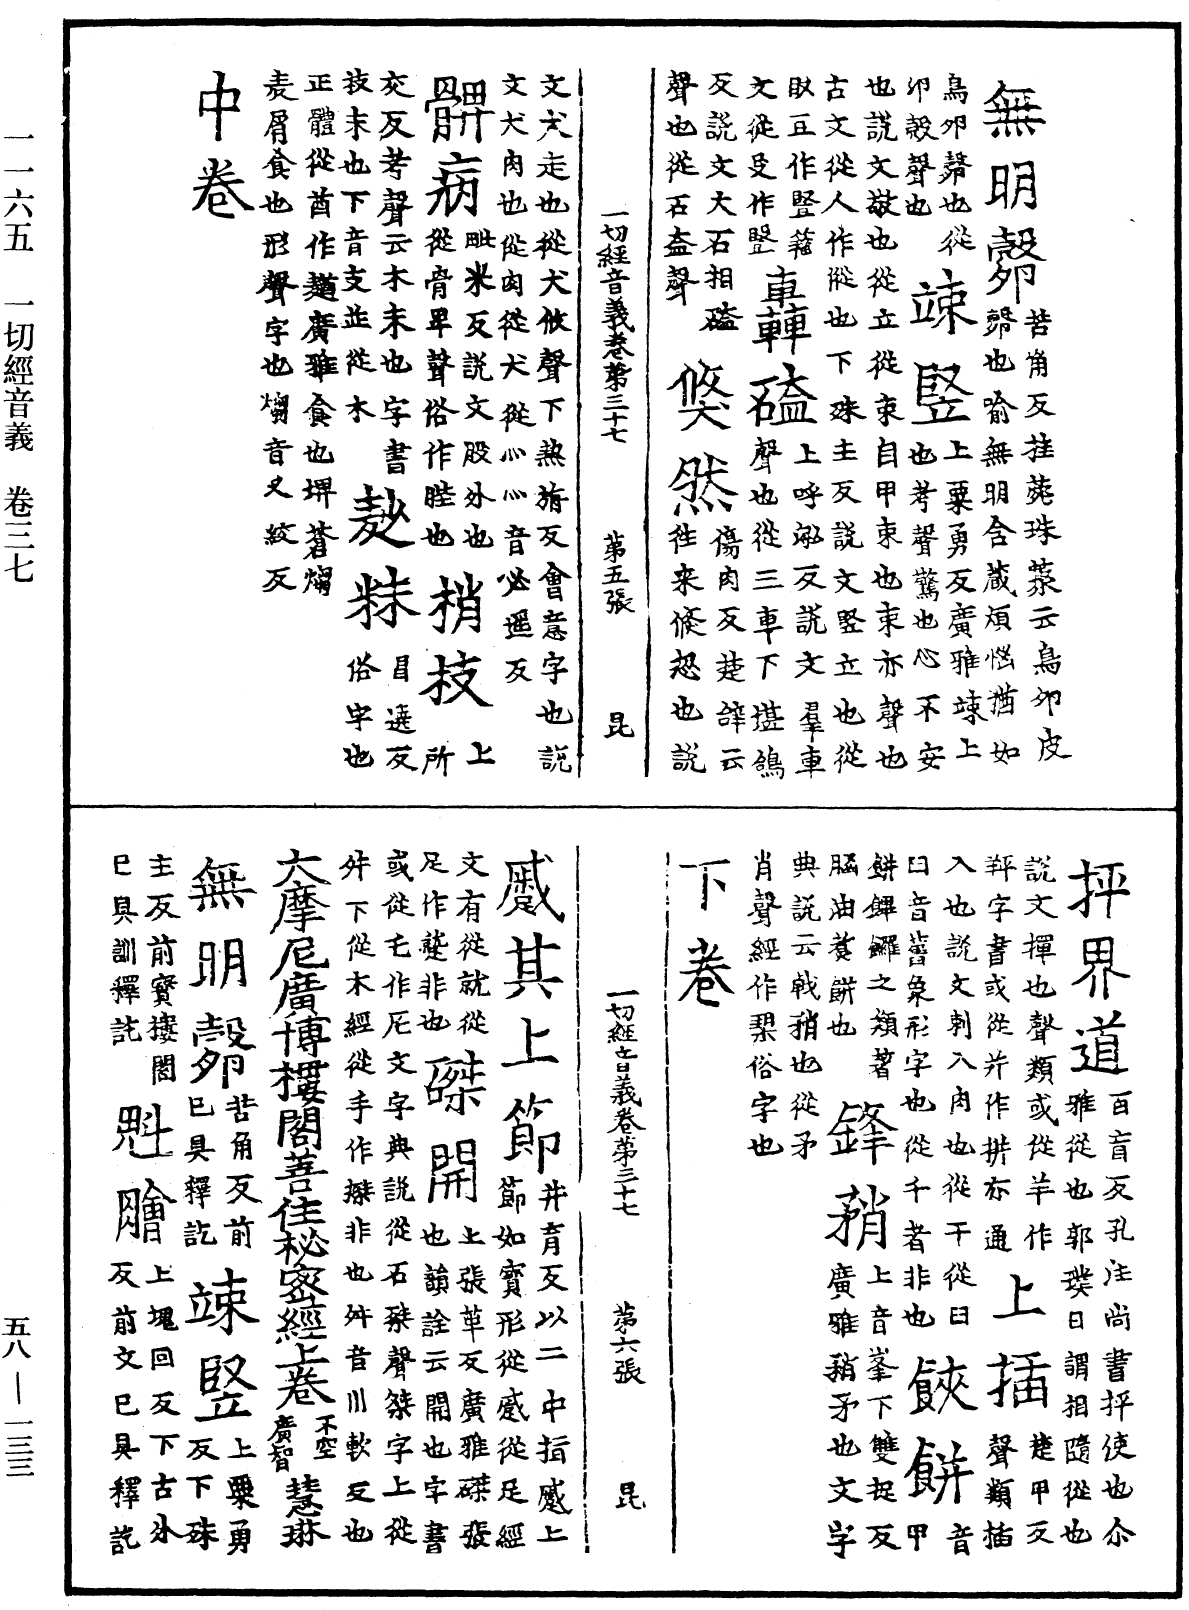 一一六五　一切經音義　卷三七
五八—一三三
無明㲉卵苦角反桂苑珠藂云鳥卵皮
㲉也喻無明含藏煩惱猶如
鳥卵㲉也從
卵㱿聲也
竦竪上粟勇反廣雅竦上
也考聲驚也心不安
也說文敬也從立從束自申束也束亦聲也
古文從人作㑛也下殊主反說文竪立也從
臤豆作豎籀
文從殳作竪
轟磕上呼泓反說文羣車
聲也從三車下堪鴿
反說文大石相磕
聲也從石盍聲
倏然傷肉反楚辭云
往來倏忽也說
一切經音義卷第三十七　第五張　昆
文犬走也從犬攸聲下熱旃反會意字也說
文犬肉也從肉從犬從灬灬音必遥反
髀病毗米反說文股外也
從骨卑聲俗作䏶也
梢枝上所
交反考聲云木末也字書
枝末也下音支並從木
麨粖昌遶反
俗字也
正體從酋作䴬廣雅食也埤蒼熘
麦屑食也形聲字也熘音叉絞反
中卷
抨界道百盲反孔注尚書抨使也尒
雅從也郭璞曰謂相隨從也
說文撣也聲類或從羊作
羘字書或從并作拼亦通
上插楚甲反
聲類插
入也說文刺入肉也從干從臼音
臼音舊象形字也從千者非也
餄餅甲
餅鏎鑼之類著
腦油煑餅也
鋒矟上音峯下雙捉反
廣雅矟矛也文字
典說云戟矟也從矛
肖聲經作槊俗字也
下卷
一切經音義卷第三十七　第六張　昆
蹙其上節井育反以二中指蹙上
節如寶形從蹙從足經
文有從就從
足作蹵非也
磔開上張革反廣雅磔張
也韻詮云開也字書
或從乇作厇文字典說從石桀聲桀字上從
舛下從木經從手作搩非也舛音川軟反也
大摩尼廣博樓閣善住秘密經上卷不空廣智　慧琳
無明㲉卵苦角反前
已具釋訖
竦竪上粟勇
反下殊
主反前寶摟閣
已具訓釋訖
魁膾上塊回反下古外
反前文已具釋訖